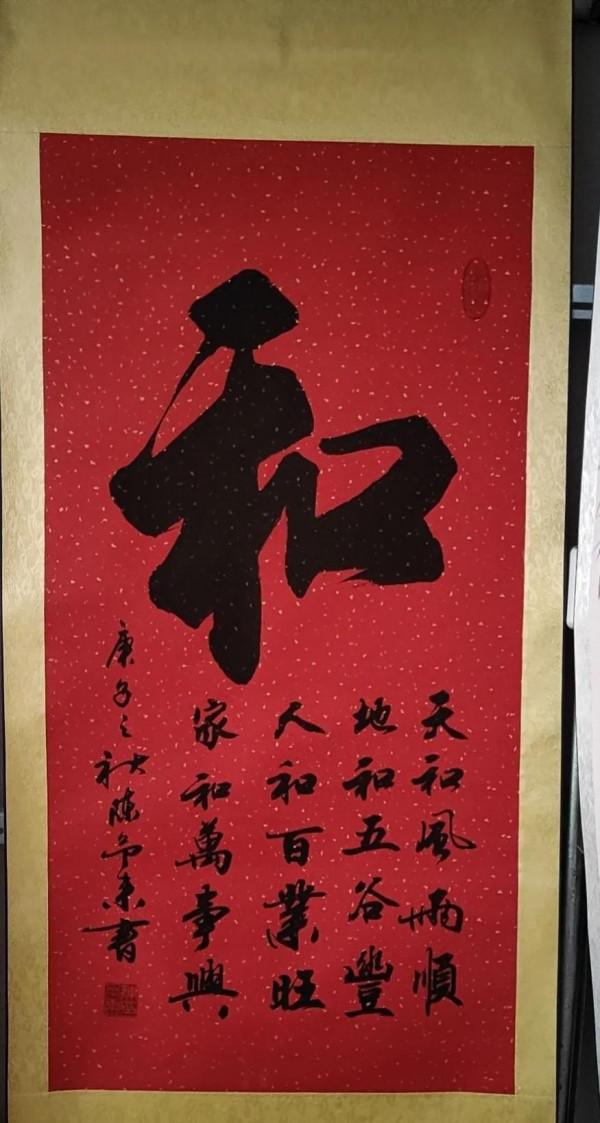 和
天和風雨順
地和五谷豐
人和百業旺
家和萬事興
庚子之秋陳書